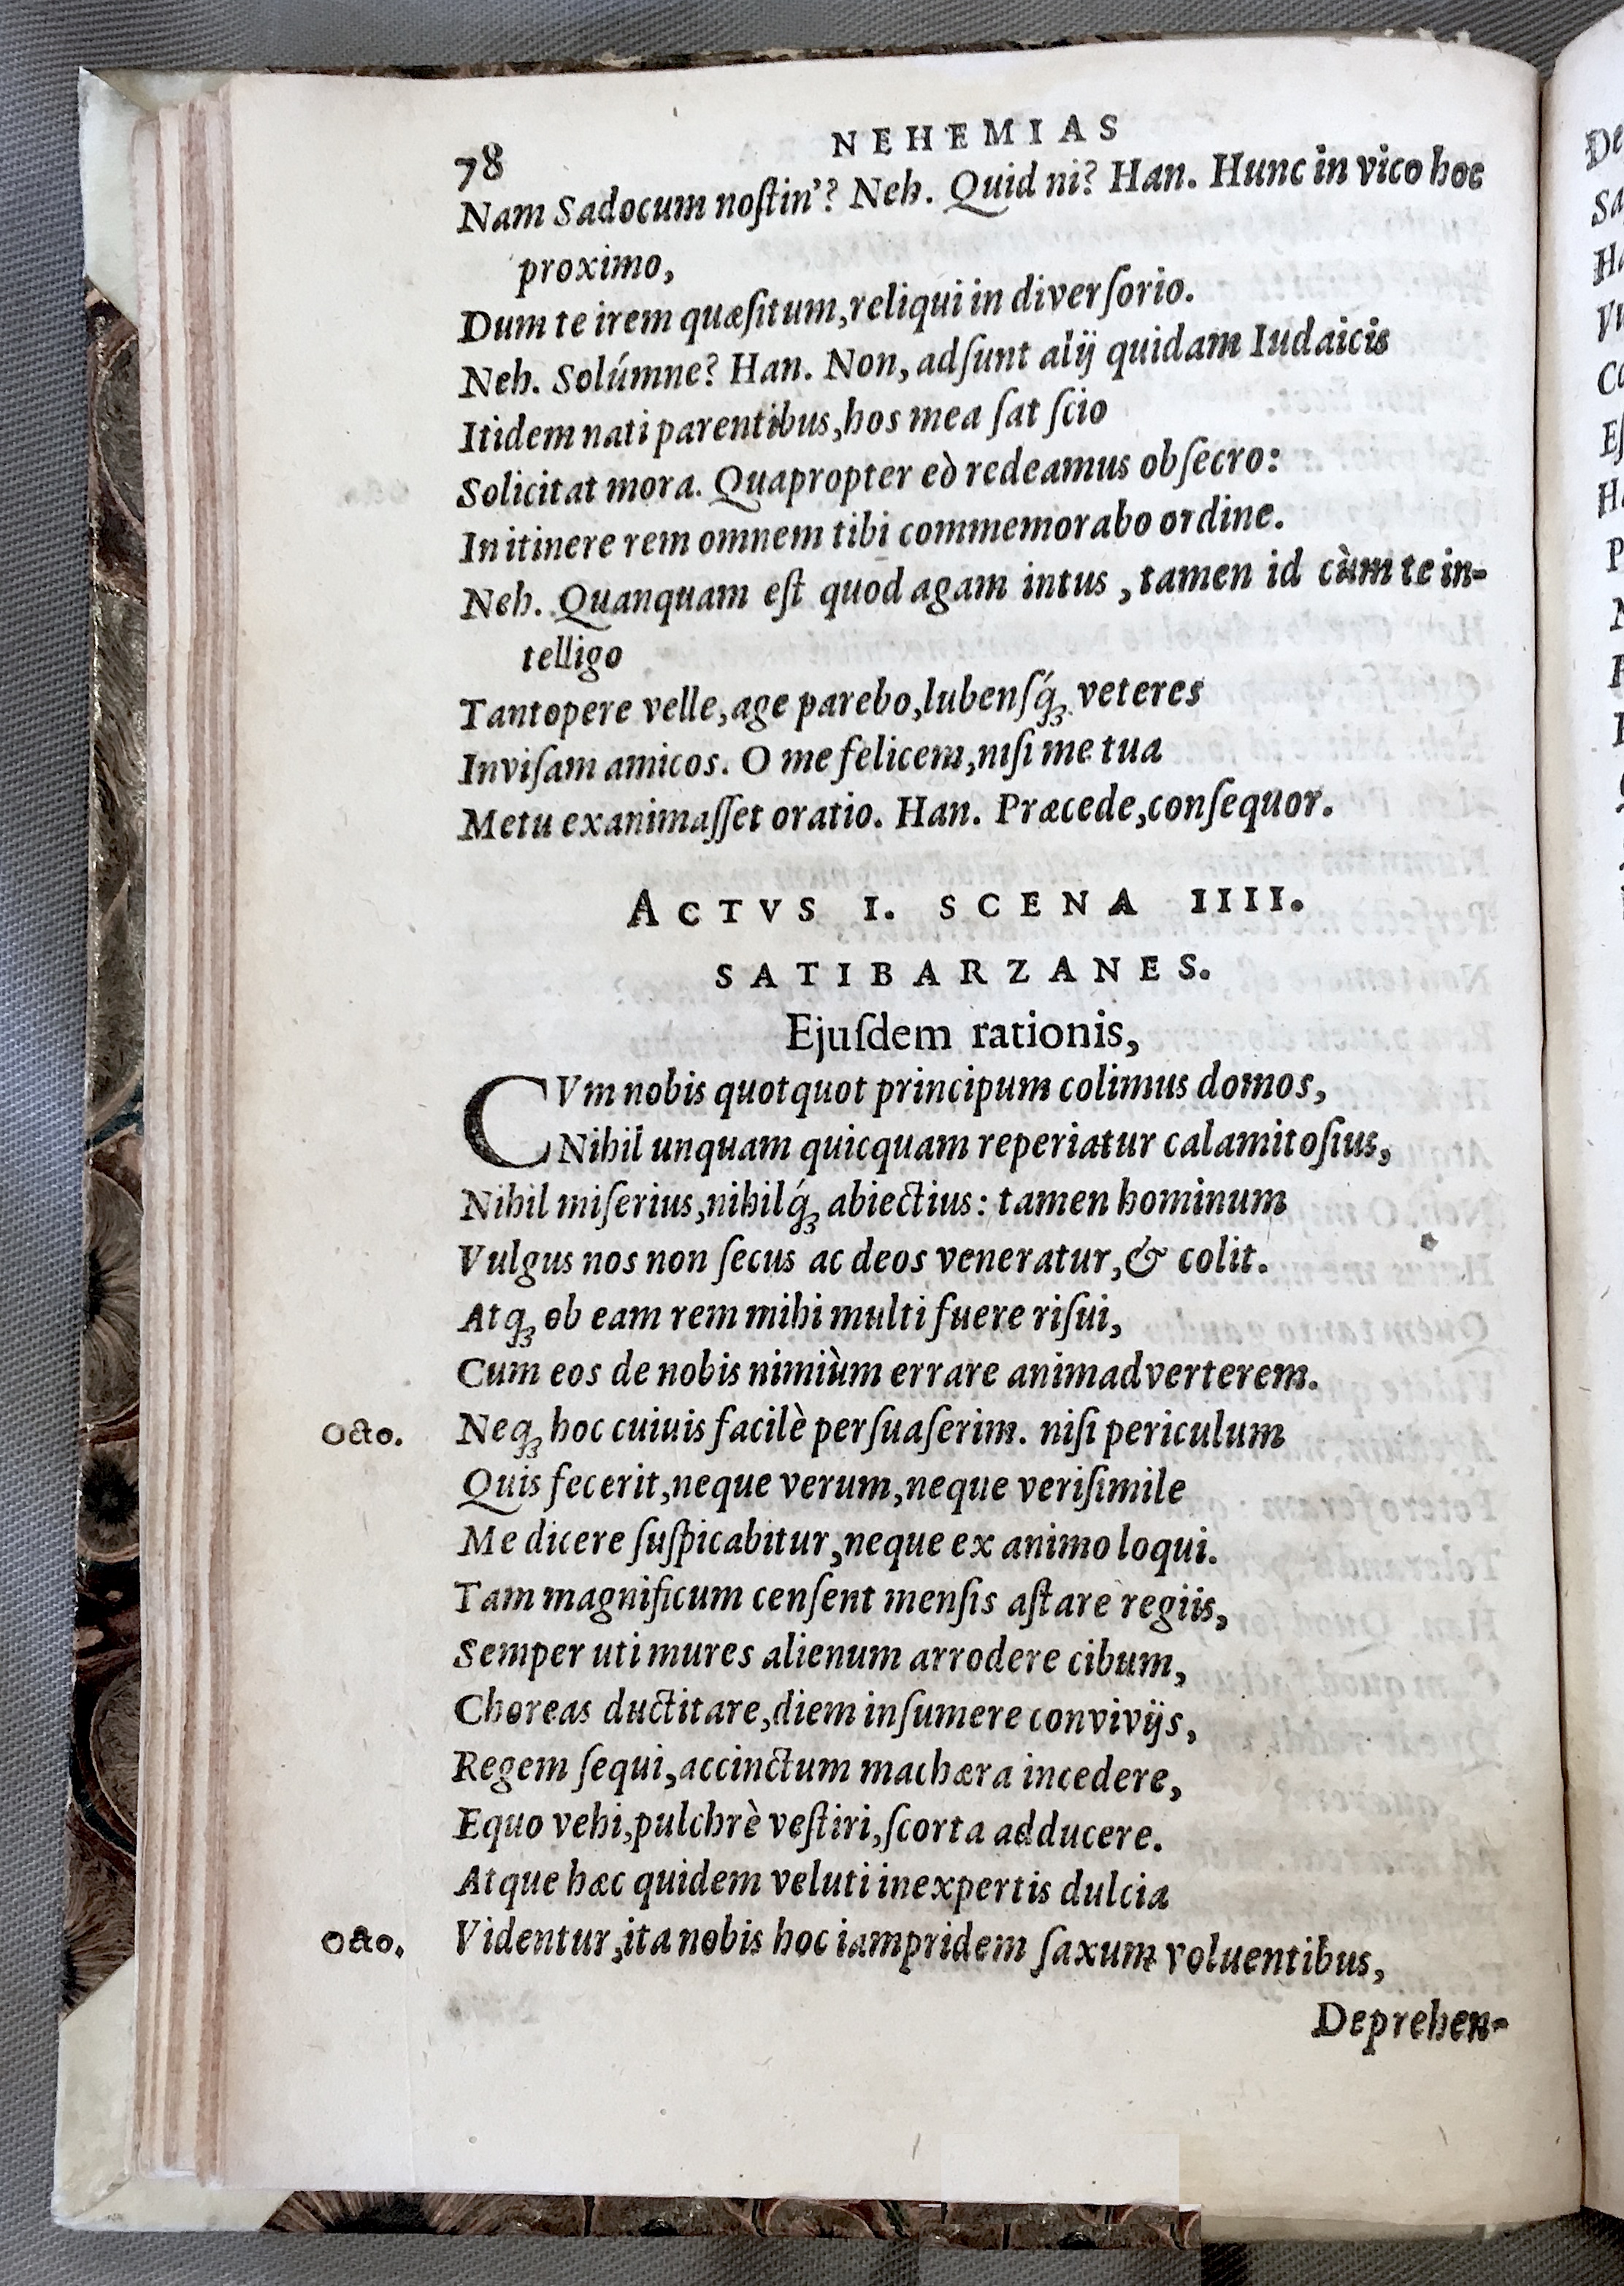 78 NEHEMIAS
Nam Sadocum noſtin'? Neh. Quid ni? Han. Hunc in vico hoc
proximo,
Dum te irem quæſitum, reliqui in diverſorio.
Neh. Solúmne? Han. Non, adſunt alij quidam Iudaicis
Itidem nati parentibus, hos mea ſat ſcio
Solicitat mora. Quapropter eò redeamus obſecro:
In itinere rem omnem tibi commemorabo ordine.
Neh. Quanquam eſt quod agam intus, tamen id cùm te in-
telligo
Tantopere velle, age parebo, lubenſq́ꝫ veteres
Inviſam amicos. O me felicem, niſi me tua
Metu exanimaſſet oratio. Han. Præcede, conſequor.
ACTVS I. SCENA IIII.
SATIBARZANES.
Ejuſdem rationis,
CVm nobis quotquot principum colimus domos,
Nihil unquam quicquam reperiatur calamitoſius,
Nihil miſerius, nihilq́ꝫ abiectius: tamen hominum
Vulgus nos non ſecus ac deos veneratur, & colit.
Atqꝫ ob eam rem mihi multi fuere riſui,
Cum eos de nobis nimiùm errare animadverterem.
Octo. Neqꝫ hoc cuiuis facilè perſuaſerim. niſi periculum
Quis fecerit, neque verum, neque veriſimile
Me dicere ſuſpicabitur, neque ex animo loqui.
Tam magnificum cenſent menſis aſtare regiis,
Semper uti mures alienum arrodere cibum,
Choreas ductitare, diem inſumere convivijs,
Regem ſequi, accinctum machæra incedere,
Equo vehi, pulchrè veſtiri, ſcorta adducere.
Atque hæc quidem veluti inexpertis dulcia
Octo. Videntur, ita nobis hoc iampridem ſaxum voluentibus,
Deprehen-